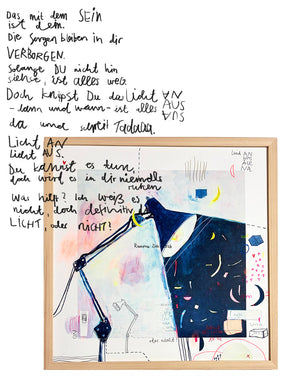 Das mit dem SEIN
ist dem.
Die Sorgen bleiben in dir
VERBORGEN.
Solange DU nicht hin
siehst, ist alles weg.
Doch knipst Du da Licht AN
- dann und wann - ist alles AUS
da und schreit Tadaaa.
Licht AN
Licht AUS.
Du kannst es tun,
doch wird es in dir niemals
ruhen
Was hilft? Ich weiß es
nicht, doch definitiv
LICHT, oder nicht!